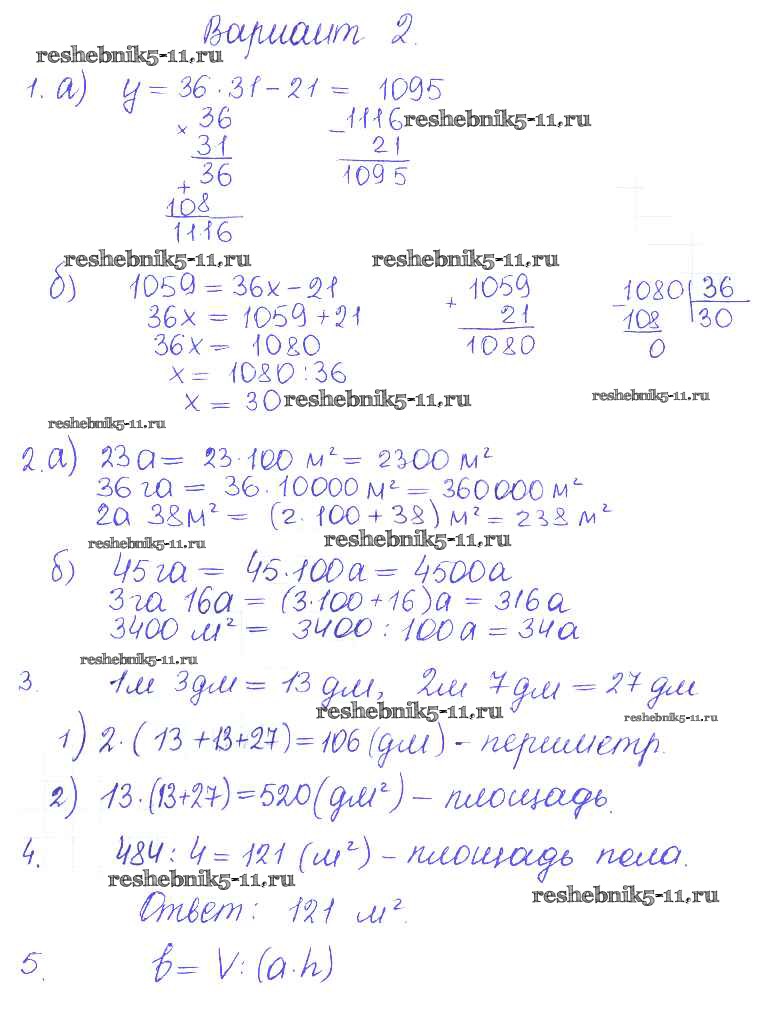 Вариант 2.
reshebnik5-11.ru
1. а) y = 36·31 − 21 = 1095
× 36
31
36
+
108
1116
− 1116 reshebnik5-11.ru
21
1095
reshebnik5-11.ru reshebnik5-11.ru
б) 1059 = 36x − 21
36x = 1059 + 21
36x = 1080
x = 1080 : 36
x = 30 reshebnik5-11.ru
+ 1059
21
1080
− 1080 36
108 30
0
reshebnik5-11.ru
reshebnik5-11.ru
2. а) 23 а = 23·100 м² = 2300 м²
36 га = 36·10000 м² = 360000 м²
2а 38 м² = (2·100 + 38) м² = 238 м²
reshebnik5-11.ru reshebnik5-11.ru
б) 45 га = 45·100 а = 4500 а
3 га 16 а = (3·100 + 16) а = 316 а
3400 м² = 3400 : 100 а = 34 а
reshebnik5-11.ru
3. 1м 3дм = 13 дм, 2м 7дм = 27 дм
reshebnik5-11.ru reshebnik5-11.ru
1) 2·(13 + 13 + 27) = 106 (дм) – периметр.
2) 13·(13 + 27) = 520 (дм²) – площадь.
4. 484 : 4 = 121 (м²) – площадь пола.
reshebnik5-11.ru reshebnik5-11.ru
Ответ: 121 м².
5. b = V : (a·h)